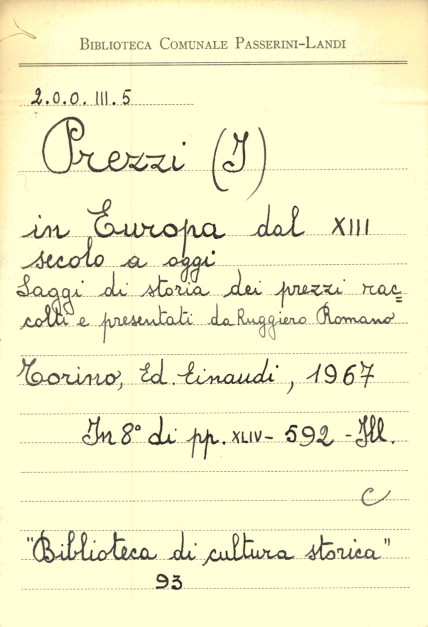 BIBLIOTECA COMUNALE PASSERINI-LANDI
2.0.0. III. 5
Prezzi (I)
in Europa dal XIII
secolo a oggi
Saggi di storia dei prezzi rac=
colti e presentati da Ruggiero Romano
Torino, Ed. Einaudi, 1967
In 8° di pp. XLIV- 592 - Ill.
C
"Biblioteca di cultura storica"
93